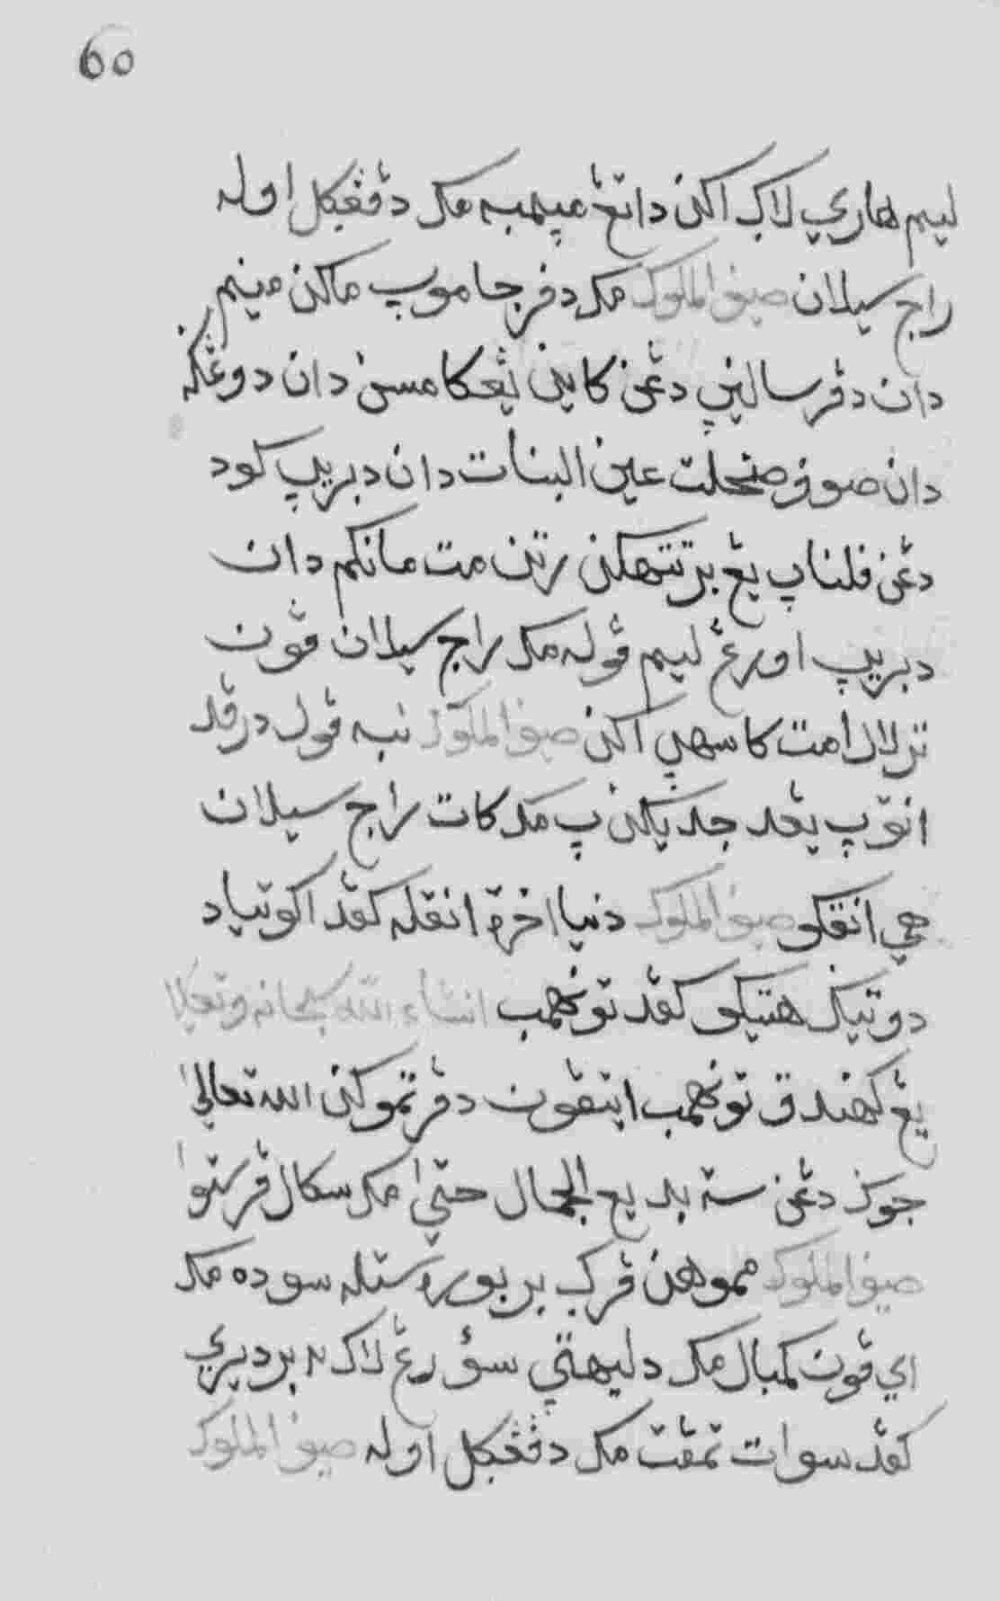 60
ليم هاري لاک اکن داتڠ ميمبه مک دڤڠݢل اوله
راج سيلان صيف الملوک مک دڤرجاموپ ماکن مينم
دان دڤرسالينپ دڠن کاين يڠ کامسن دان دوڠکن
دان صوف صخلت عين البنات دان دبريپ کود
دڠن ڤلناپ يڠ برتتهکن رتن مت مانکم دان
دبريپ اورڠ ليم ڤوله مک راج سيلان ڤون
ترلالو امت کاسهي اکن صيف الملوک تيبه ڤول درڤد
انقپ يڠد جديکنپ مک کات راج سيلان
هي انقکو صيف الملوک دنيا اخرة انقله کڤد اکو تياد
دوتيک هتيکو کڤد توهمب انشاء الله سبحانه وتعالى
يڠ کهندق توهمب ايتڤون دڤرتموکن الله تعالى
جوک دڠن ست بديع الجمال حتى مک سکال ڤرستوا
صيف الملوک مموهن ڤرݢ بربورو ستله سوده مک
اي ڤون کمبال مک دليهتپ سؤرڠ لاک٢ بردير
کڤد سوات تمڤت مک دڤڠݢل اوله صيف الملوک